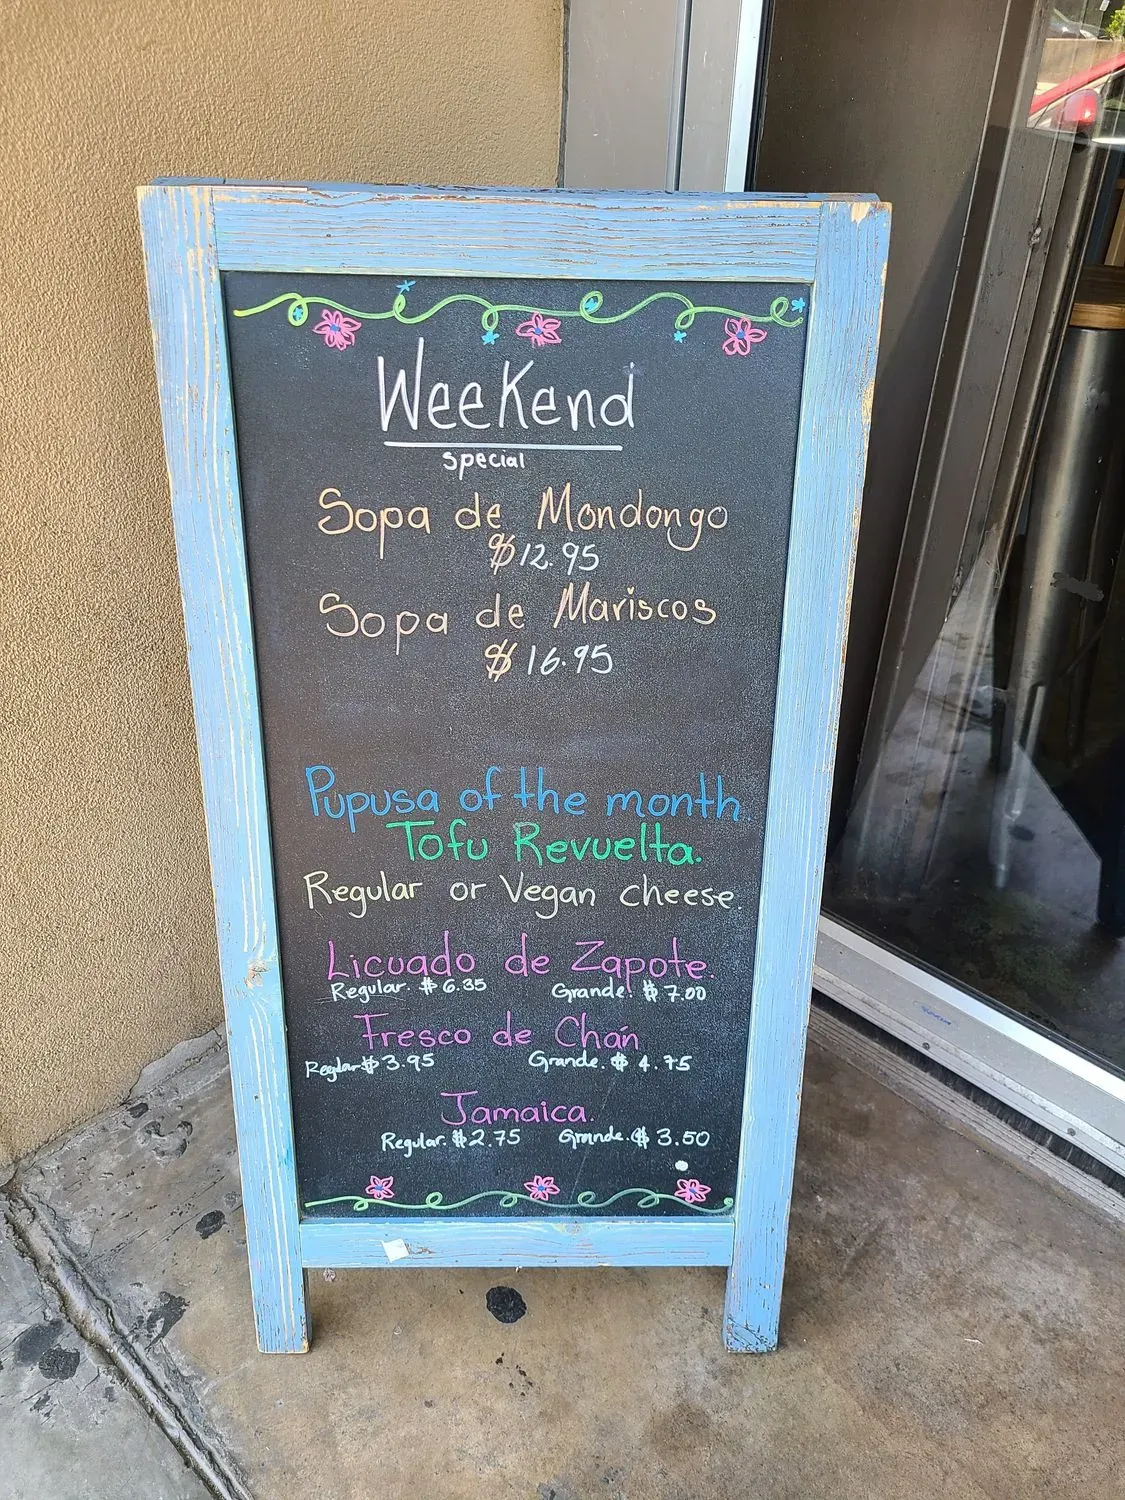 Weekend
special
Sopa de Mondongo
$12.95
Sopa de Mariscos
$16.95
Pupusa of the month.
Tofu Revuelta.
Regular or Vegan cheese.
Licuado de Zapote.
Regular. $6.35 Grande. $7.00
Fresco de Chán
Regular $3.95 Grande. $4.75
Jamaica.
Regular. $2.75 Grande. $3.50